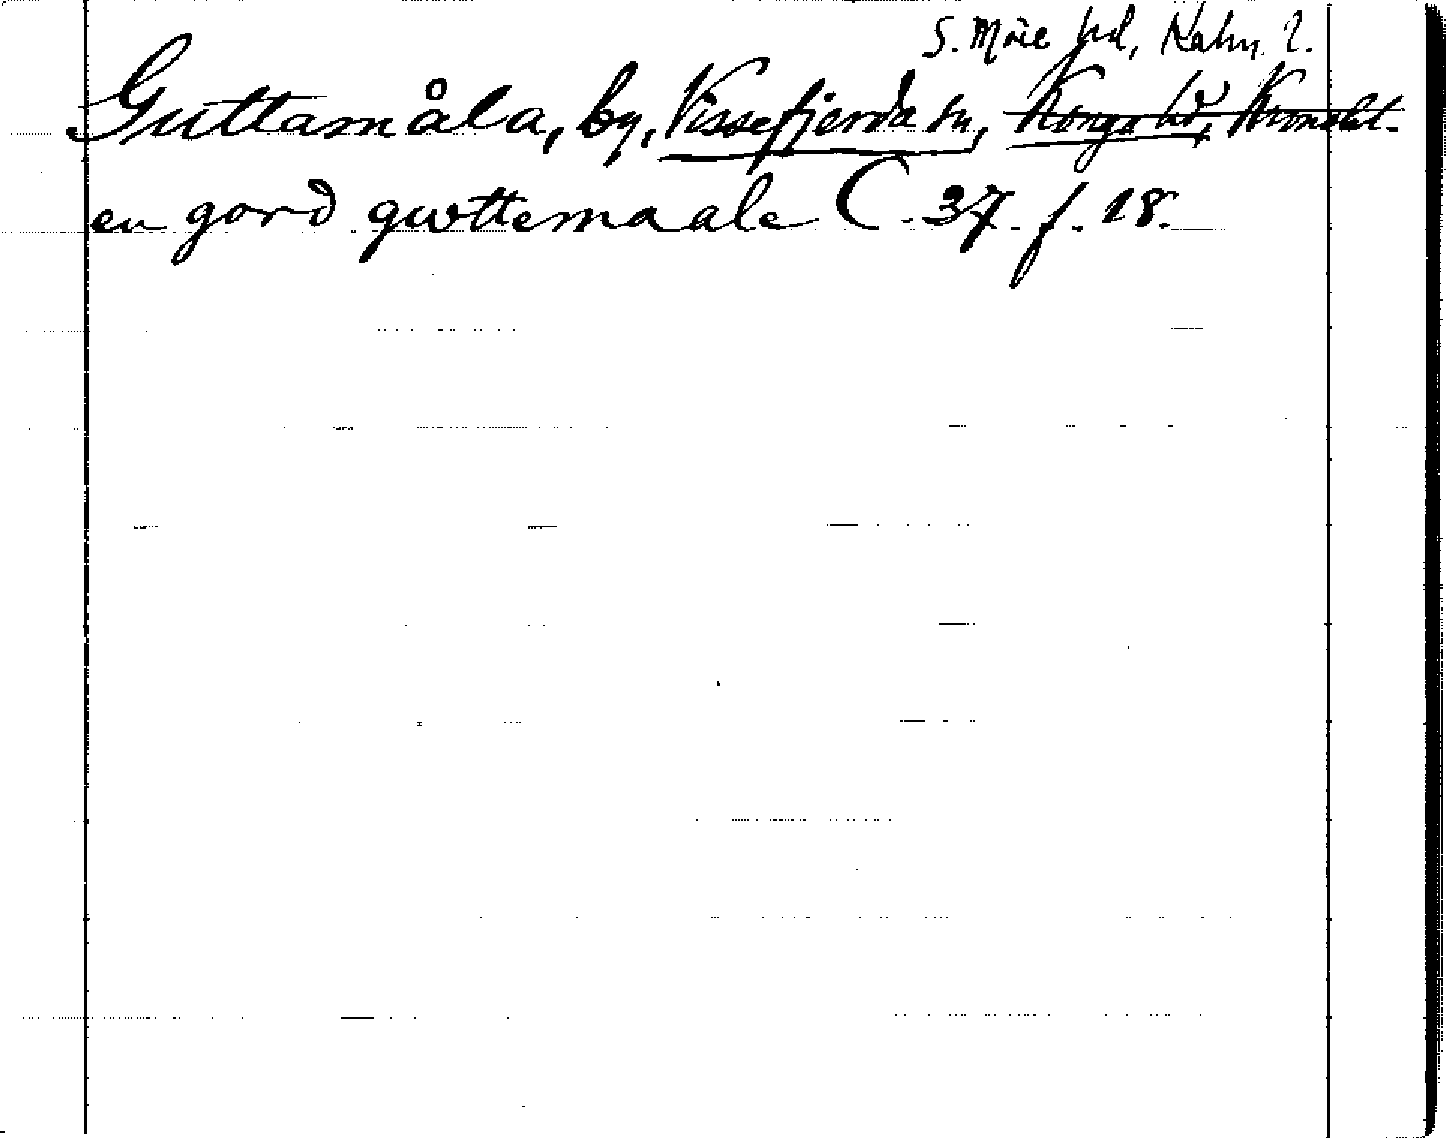 S. Möre hd, Kalm. l.
Guttamåla, by, Vissefjerda sn, Konga hd, Kronobl.
en gord gwttemaale C 37. f. 18.